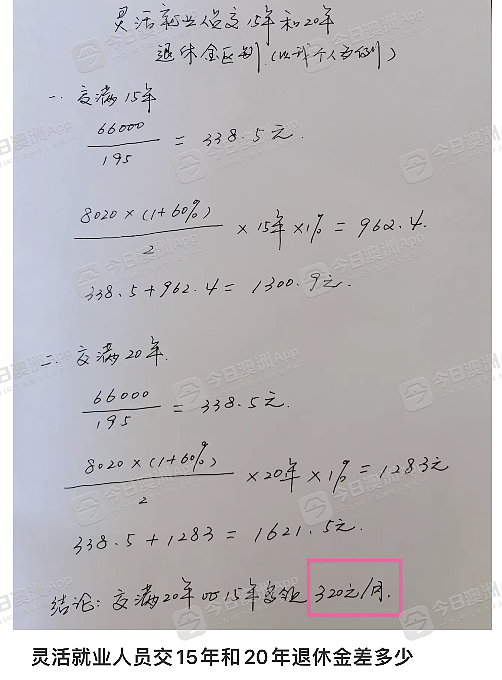 灵活就业人员交15年和20年
退休金区别(以我个人为例)
一.交满15年
66000
195
= 338.5元.
8020×(1+60%)
2
×15年×1% = 962.4.
338.5+962.4= 1300.9元.
二.交满20年.
66000
195
=338.5元.
8020×(1+60%)
2
×20年×1%=1283元
338.5+1283 = 1621.5元.
结论:交满20年比15年多领 320元/月.
灵活就业人员交15年和20年退休金差多少
今日澳洲App